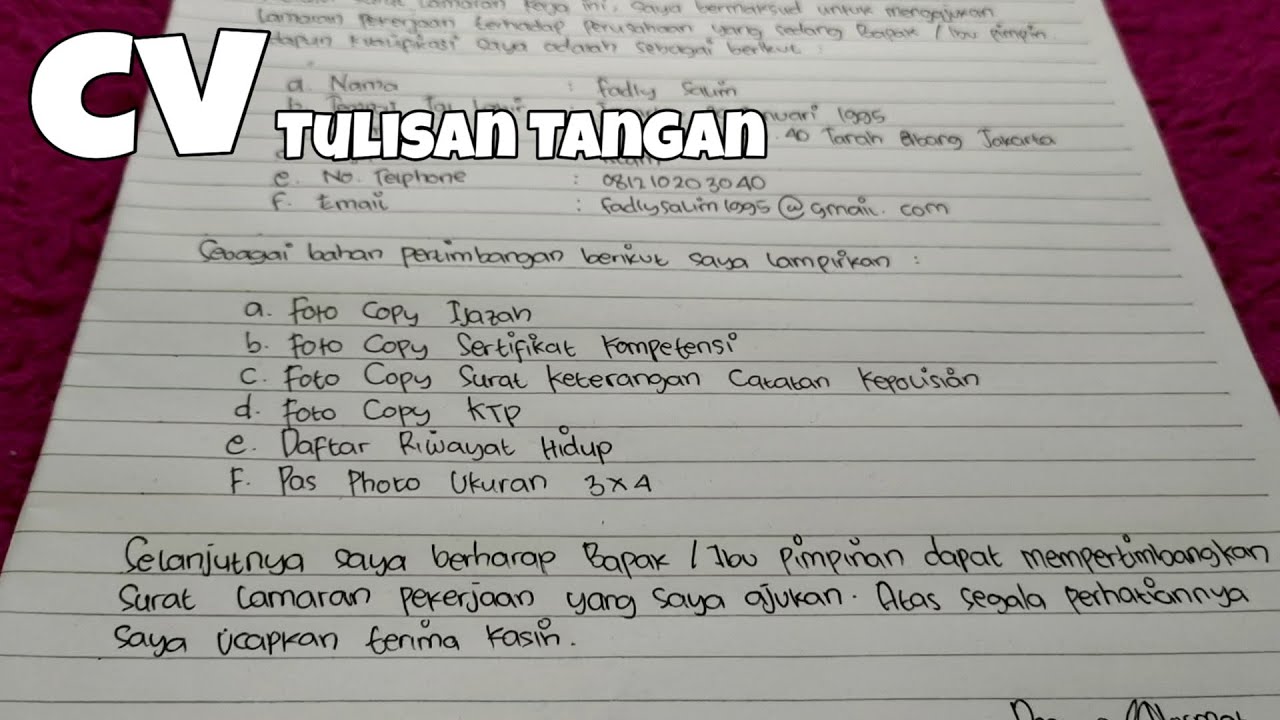 CV TULISAN TANGAN
lamaran kerja ini, saya bermaksud untuk mengajukan
lamaran pekerjaan terhadap perusahaan yang sedang Bapak / Ibu pimpin.
saya adalah sebagai berikut :
a. Nama : Fadly Salim
1995
40 Tanah Abang Jakarta
e. No. Telphone : 081210203040
f. Email : fadlysalim1995@gmail.com
Sebagai bahan pertimbangan berikut saya lampirkan :
a. Foto Copy Ijazah
b. Foto Copy Sertifikat Kompetensi
c. Foto Copy Surat Keterangan Catatan Kepolisian
d. Foto Copy KTP
e. Daftar Riwayat Hidup
F. Pas Photo Ukuran 3x4
Selanjutnya saya berharap Bapak / Ibu pimpinan dapat mempertimbangkan
Surat lamaran pekerjaan yang saya ajukan. Atas segala perhatiannya
saya ucapkan terima kasih.